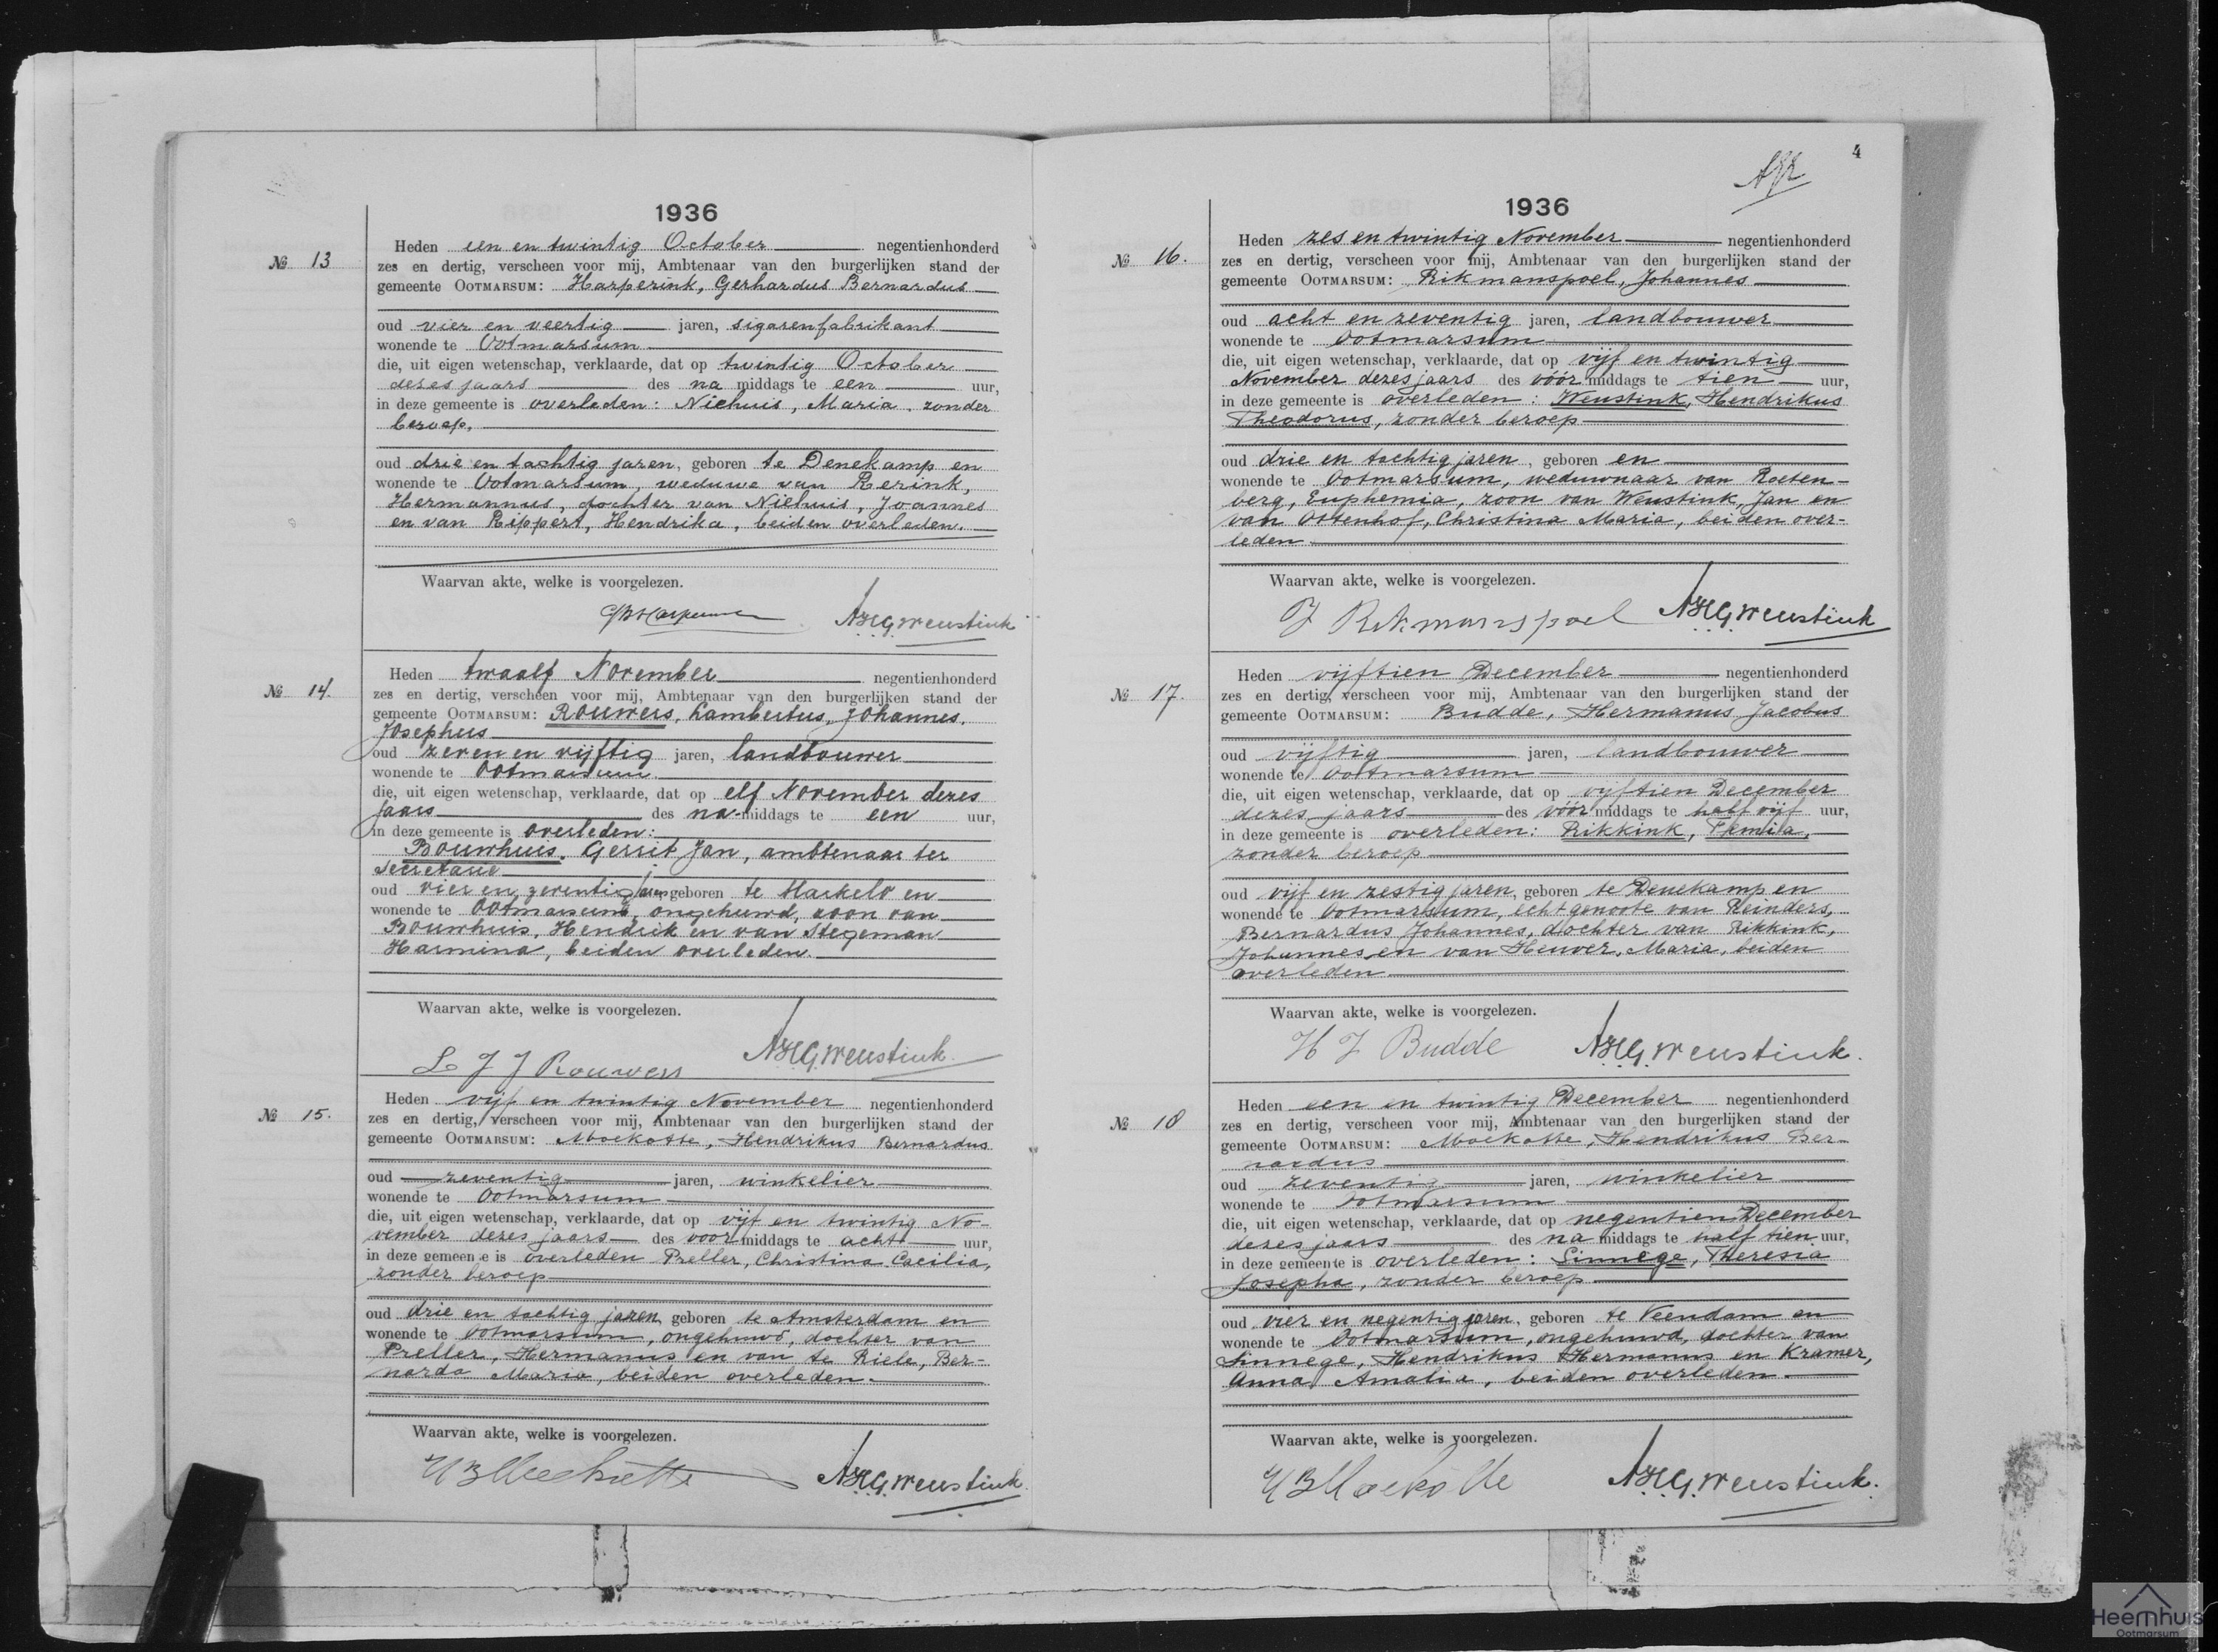 1936
№ 13
Heden een en twintig October negentienhonderd
zes en dertig, verscheen voor mij, Ambtenaar van den burgerlijken stand der
gemeente OOTMARSUM: Harperink, Gerhardus Bernardus
oud vier en veertig jaren, sigarenfabrikant
wonende te Ootmarsum
die, uit eigen wetenschap, verklaarde, dat op twintig October
dezes jaars des na middags te een uur,
in deze gemeente is overleden: Niehuis, Maria, zonder
beroep,
oud drie en tachtig jaren, geboren te Denekamp en
wonende te Ootmarsum, weduwe van Rerink,
Hermannus, dochter van Niehuis, Joannes
en van Rippert, Hendrika, beiden overleden.
Waarvan akte, welke is voorgelezen.
GBHarperink AHGWeustink
№ 14.
Heden twaalf November negentienhonderd
zes en dertig, verscheen voor mij, Ambtenaar van den burgerlijken stand der
gemeente OOTMARSUM: Rouwers, Lambertus, Johannes,
Josephus
oud zeven en vijftig jaren, landbouwer
wonende te Ootmarsum
die, uit eigen wetenschap, verklaarde, dat op elf November dezes
jaars des na-middags te een uur,
in deze gemeente is overleden:
Bouwhuis, Gerrit Jan, ambtenaar ter
secretarie
oud vier en zeventig jaren geboren te Markelo en
wonende te Ootmarsum, ongehuwd, zoon van
Bouwhuis, Hendrik en van Stegeman
Harmina, beiden overleden.
Waarvan akte, welke is voorgelezen.
L J J Rouwers AHGWeustink.
№ 15.
Heden vijf en twintig November negentienhonderd
zes en dertig, verscheen voor mij, Ambtenaar van den burgerlijken stand der
gemeente OOTMARSUM: Moekotte, Hendrikus Bernardus
oud zeventig jaren, winkelier
wonende te Ootmarsum
die, uit eigen wetenschap, verklaarde, dat op vijf en twintig No-
vember dezes jaars des voor middags te acht uur,
in deze gemeente is overleden Preller, Christina Caecilia,
zonder beroep
oud drie en tachtig jaren, geboren te Amsterdam en
wonende te Ootmarsum, ongehuwd, dochter van
Preller, Hermanus en van te Riele, Ber-
narda Maria, beiden overleden.
Waarvan akte, welke is voorgelezen.
HBMoekotte AHGWeustink.
4
1936
№ 16.
Heden zes en twintig November negentienhonderd
zes en dertig, verscheen voor mij, Ambtenaar van den burgerlijken stand der
gemeente OOTMARSUM: Rikmanspoel, Johannes
oud acht en zeventig jaren, landbouwer
wonende te Ootmarsum
die, uit eigen wetenschap, verklaarde, dat op vijf en twintig
November dezes jaars des vóór middags te tien uur,
in deze gemeente is overleden: Weustink, Hendrikus
Theodorus, zonder beroep
oud drie en tachtig jaren, geboren en
wonende te Ootmarsum, weduwnaar van Roeten-
berg, Euphemia, zoon van Weustink, Jan en
van Ottenhof, Christina Maria, beiden over-
leden
Waarvan akte, welke is voorgelezen.
J Rikmanspoel AHGWeustink
№ 17.
Heden vijftien December negentienhonderd
zes en dertig, verscheen voor mij, Ambtenaar van den burgerlijken stand der
gemeente OOTMARSUM: Budde, Hermanus Jacobus
oud vijftig jaren, landbouwer
wonende te Ootmarsum
die, uit eigen wetenschap, verklaarde, dat op vijftien December
dezes jaars des vóór middags te half vijf uur,
in deze gemeente is overleden: Rikkink,
zonder beroep
oud vijf en zestig jaren, geboren te Denekamp en
wonende te Ootmarsum, echtgenoote van Reinders,
Bernardus Johannes, dochter van Rikkink,
Johannes en van Heuver, Maria, beiden
overleden
Waarvan akte, welke is voorgelezen.
H J Budde AHGWeustink.
№ 18
Heden een en twintig December negentienhonderd
zes en dertig, verscheen voor mij, Ambtenaar van den burgerlijken stand der
gemeente OOTMARSUM: Moekotte, Hendrikus Ber-
nardus
oud zeventig jaren, winkelier
wonende te Ootmarsum
die, uit eigen wetenschap, verklaarde, dat op negentien December
dezes jaars des na middags te half tien uur,
in deze gemeente is overleden: Sinnege, Theresia
Josepha, zonder beroep
oud vier en negentig jaren, geboren te Veendam en
wonende te Ootmarsum, ongehuwd, dochter van
Sinnege, Hendrikus Hermanus en Kramer,
Anna Amalia, beiden overleden.
Waarvan akte, welke is voorgelezen.
HBMoekotte AHGWeustink.
Heemhuis
Ootmarsum